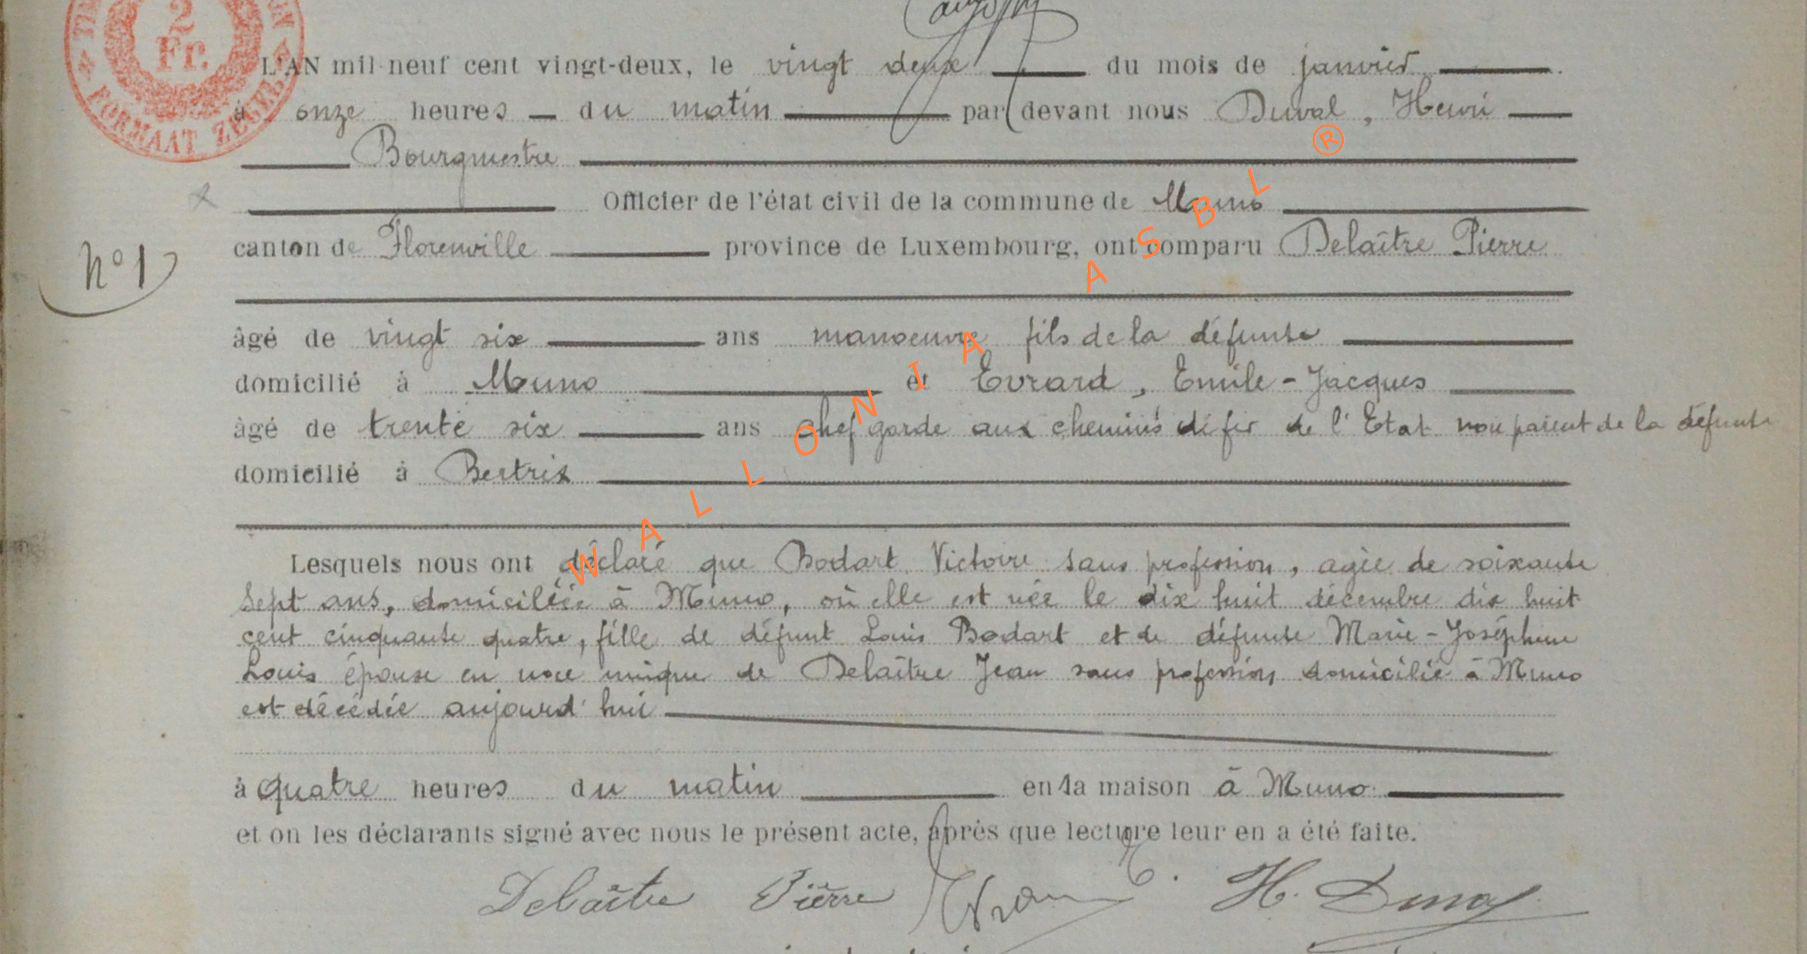 2
Fr.
FORMAAT ZEGEL
L'AN mil neuf cent vingt-deux, le vingt deux du mois de janvier
à onze heures du matin par devant nous Duval, Henri
Bourgmestre
Officier de l'état civil de la commune de Muno
N° 1
canton de Florenville province de Luxembourg, ont comparu Delaître Pierre
âgé de vingt six ans manoeuvre fils de la défunte
domicilié à Muno et Evrard, Emile-Jacques
âgé de trente six ans chef garde aux chemins de fer de l'Etat non parent de la défunte
domicilié à Bertrix
Lesquels nous ont déclaré que Bodart Victoire sans profession, agée de soixante
sept ans, domiciliée à Muno, où elle est née le dix huit décembre dix huit
cent cinquante quatre, fille de défunt Louis Bodart et de défunte Marie-Joséphine
Louis épouse en noce unique de Delaître Jean sans profession domicilié à Muno
est décédée aujourd'hui
à quatre heures du matin en la maison à Muno
et on les déclarants signé avec nous le présent acte, après que lecture leur en a été faite.
Delaître Pierre Evrard E. H. Duval
WALLONIA ASBL ®